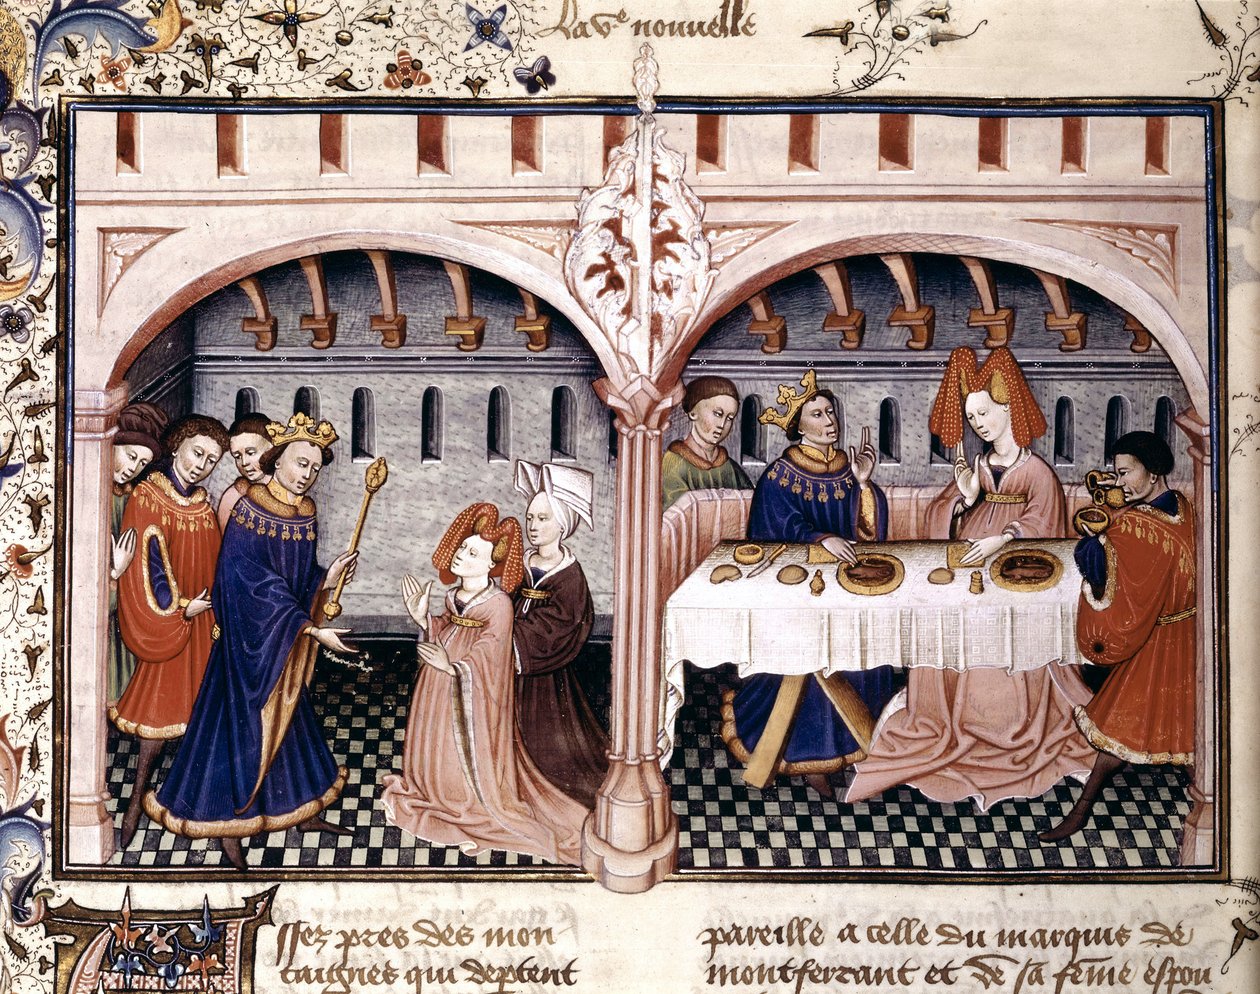 La ve nouuelle
ssez pres des mon
taignes qui deptent
pareille a celle du marquis de
montferrant et de sa feme espou